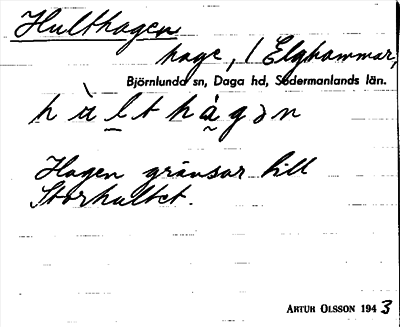 Hulthagen
hage, / Elghammar,
Björnlunda sn, Daga hd, Södermanlands län.
hùlthàgən
Hagen gränsar till
Storhultet.
ARTUR OLSSON 1943